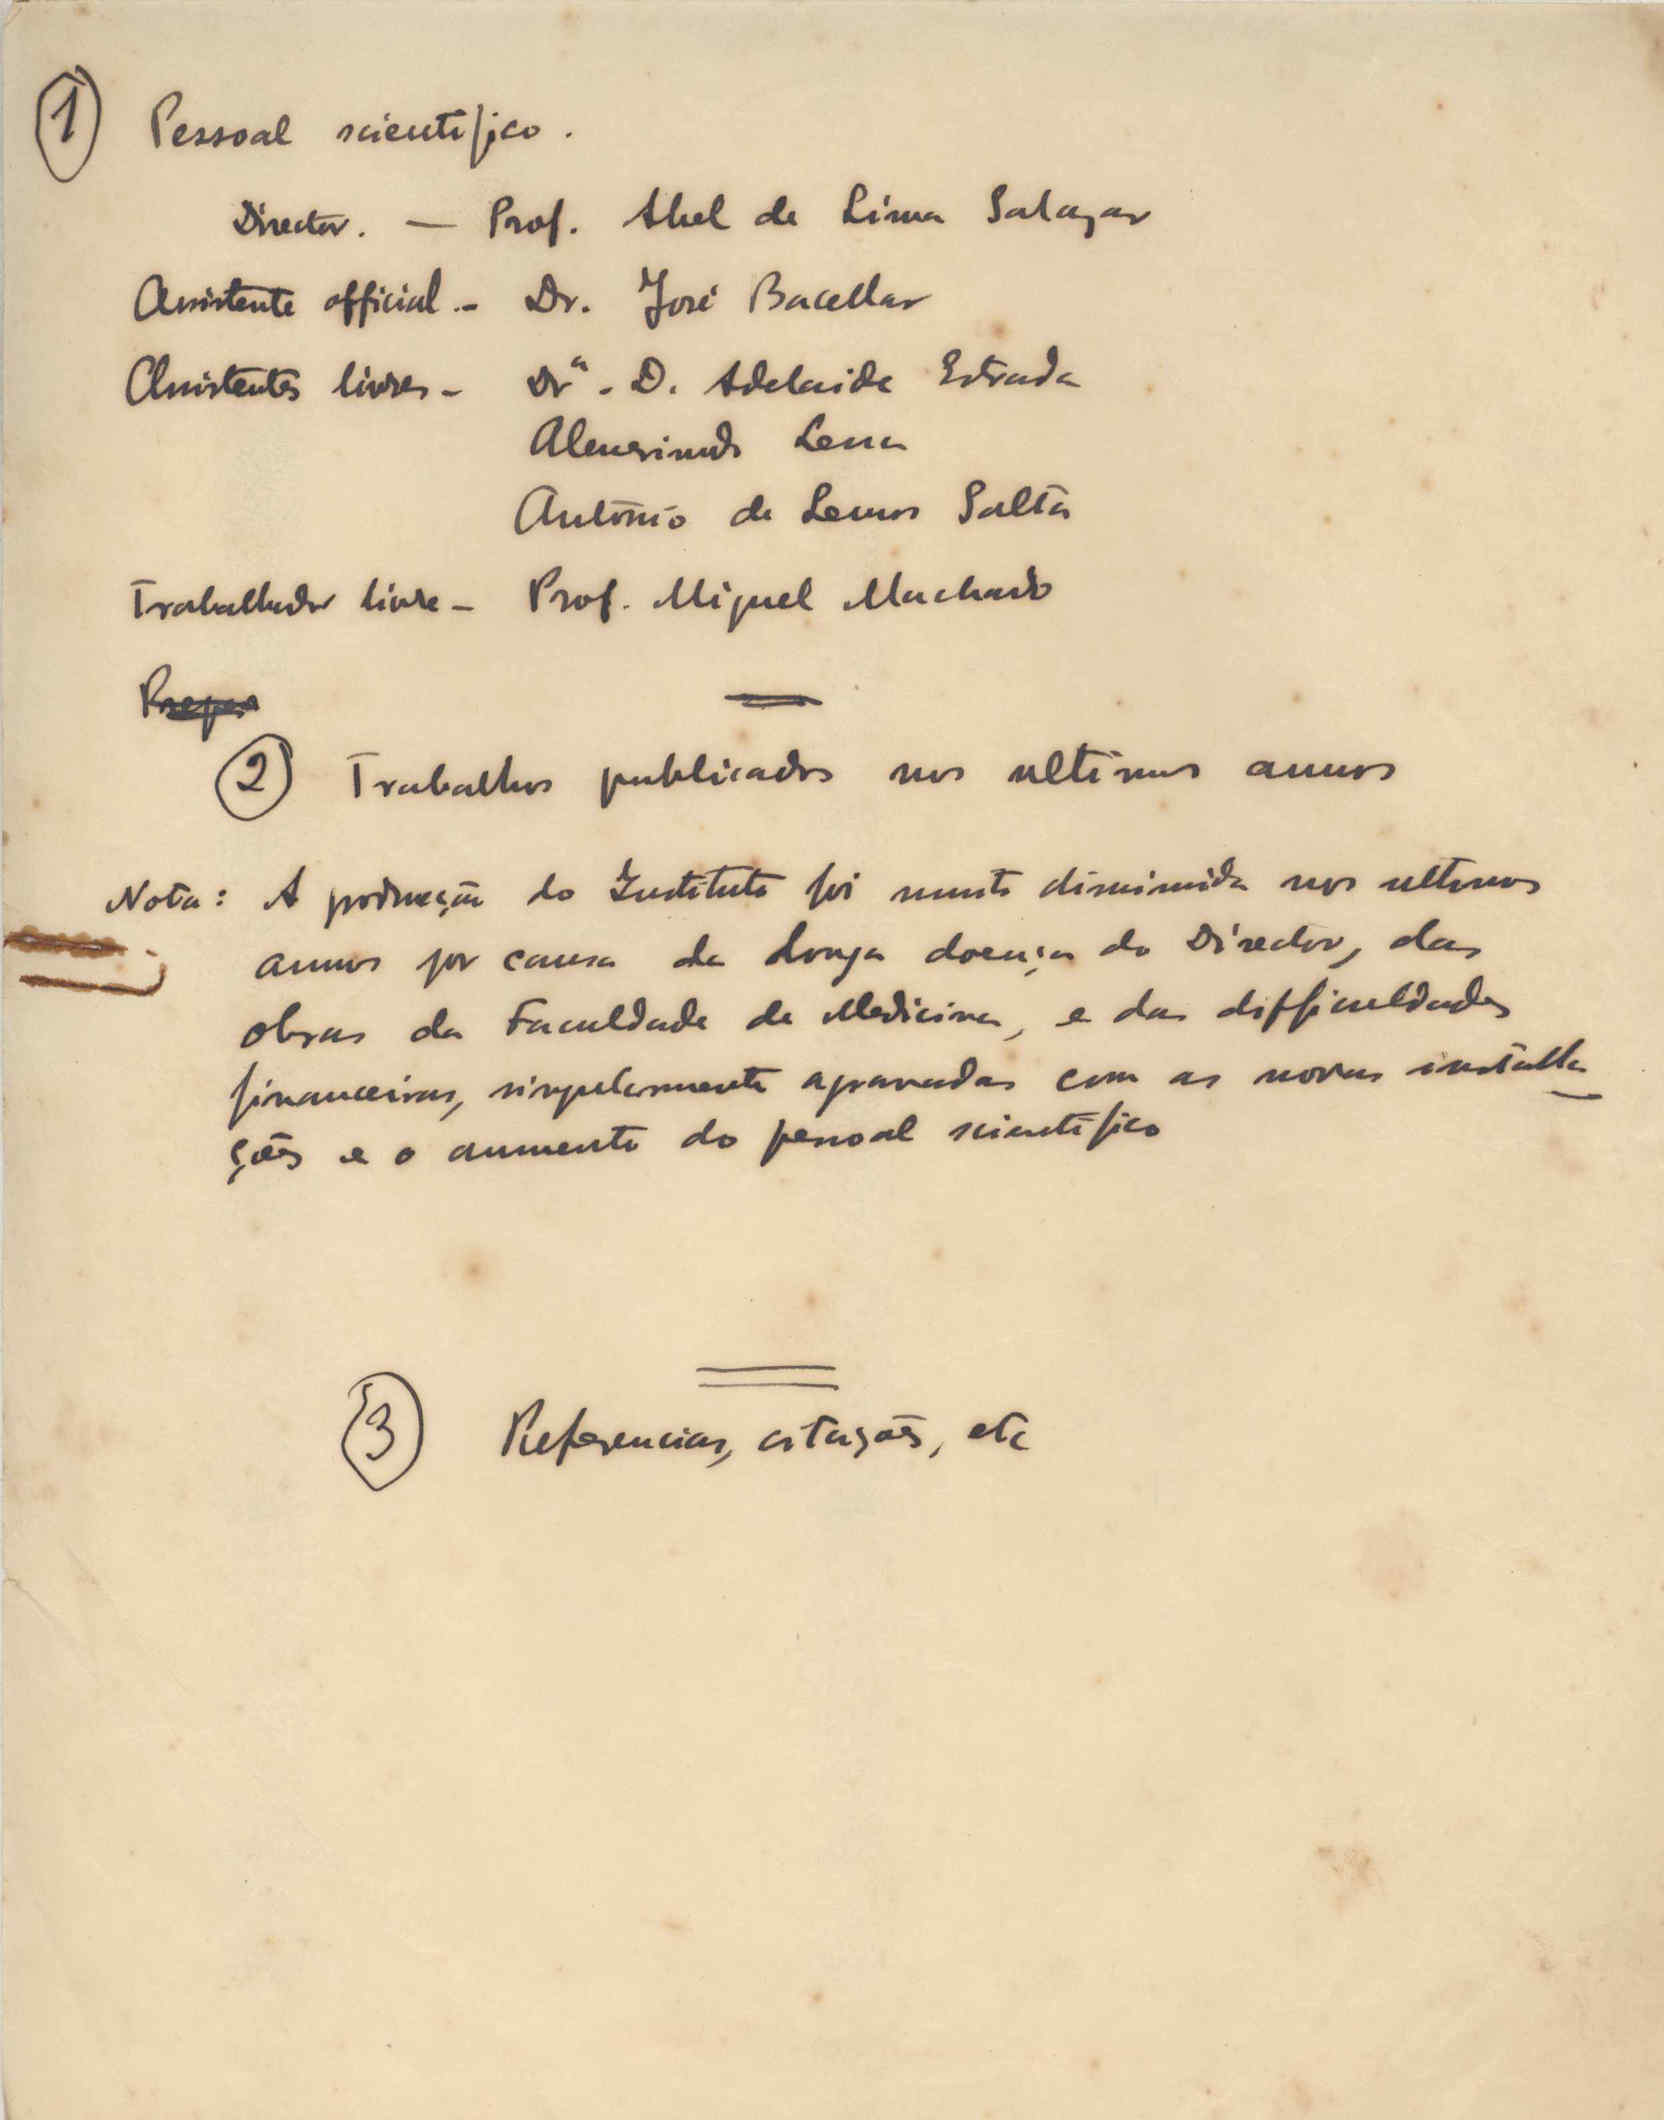 1 Pessoal scientifico.
Director. — Prof. Abel de Lima Salazar
Assistente official - Dr. José Bacellar
Assistentes livres - Drª. D. Adelaide Estrada
Lessa
António de Lemos Salta
Trabalhador livre - Prof. Miguel Machado
2 Trabalhos publicados nos ultimos annos
Nota: A producção do Instituto foi muito diminuida nos ultimos
annos por causa da longa doença do Director, das
obras da Faculdade de Medicina, e das difficuldades
financeiras, singularmente agravadas com as novas installa
ções e o aumento do pessoal scientifico
3 Referencias, citações, etc